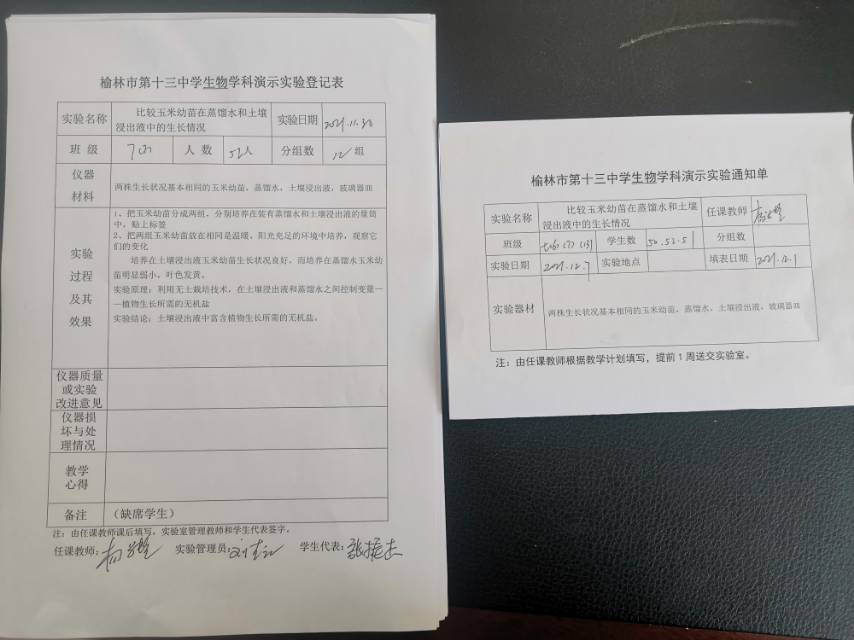 榆林市第十三中学生物学科演示实验登记表
实验名称 比较玉米幼苗在蒸馏水和土壤浸出液中的生长情况 实验日期 2021.11.30
班 级 人 数 52人 分组数 12 组
仪器
材料
两株生长状况基本相同的玉米幼苗，蒸馏水，土壤浸出液，玻璃器皿
实验
过程
及其
效果
1、把玉米幼苗分成两组，分别培养在装有蒸馏水和土壤浸出液的量筒
中，贴上标签
2、把两组玉米幼苗放在相同是温暖、阳光充足的环境中培养，观察它
们的变化
培养在土壤浸出液玉米幼苗生长状况良好，而培养在蒸馏水玉米幼
苗明显弱小，叶色发黄。
实验原理：利用无土栽培技术，在土壤浸出液和蒸馏水之间控制变量—
—植物生长所需的无机盐
实验结论：土壤浸出液中富含植物生长所需的无机盐。
仪器质量
或实验
改进意见
仪器损
坏与处
理情况
教学
心得
备注 （缺席学生）
注：由任课教师课后填写，实验室管理教师和学生代表签字。
任课教师： 实验管理员： 学生代表：
榆林市第十三中学生物学科演示实验通知单
实验名称 比较玉米幼苗在蒸馏水和土壤浸出液中的生长情况 任课教师
班级 学生数 50.52.51 分组数
实验日期 2021.12.7 实验地点 填表日期 2021.12.1
实验器材 两株生长状况基本相同的玉米幼苗，蒸馏水，土壤浸出液，玻璃器皿
注：由任课教师根据教学计划填写，提前1周送交实验室。